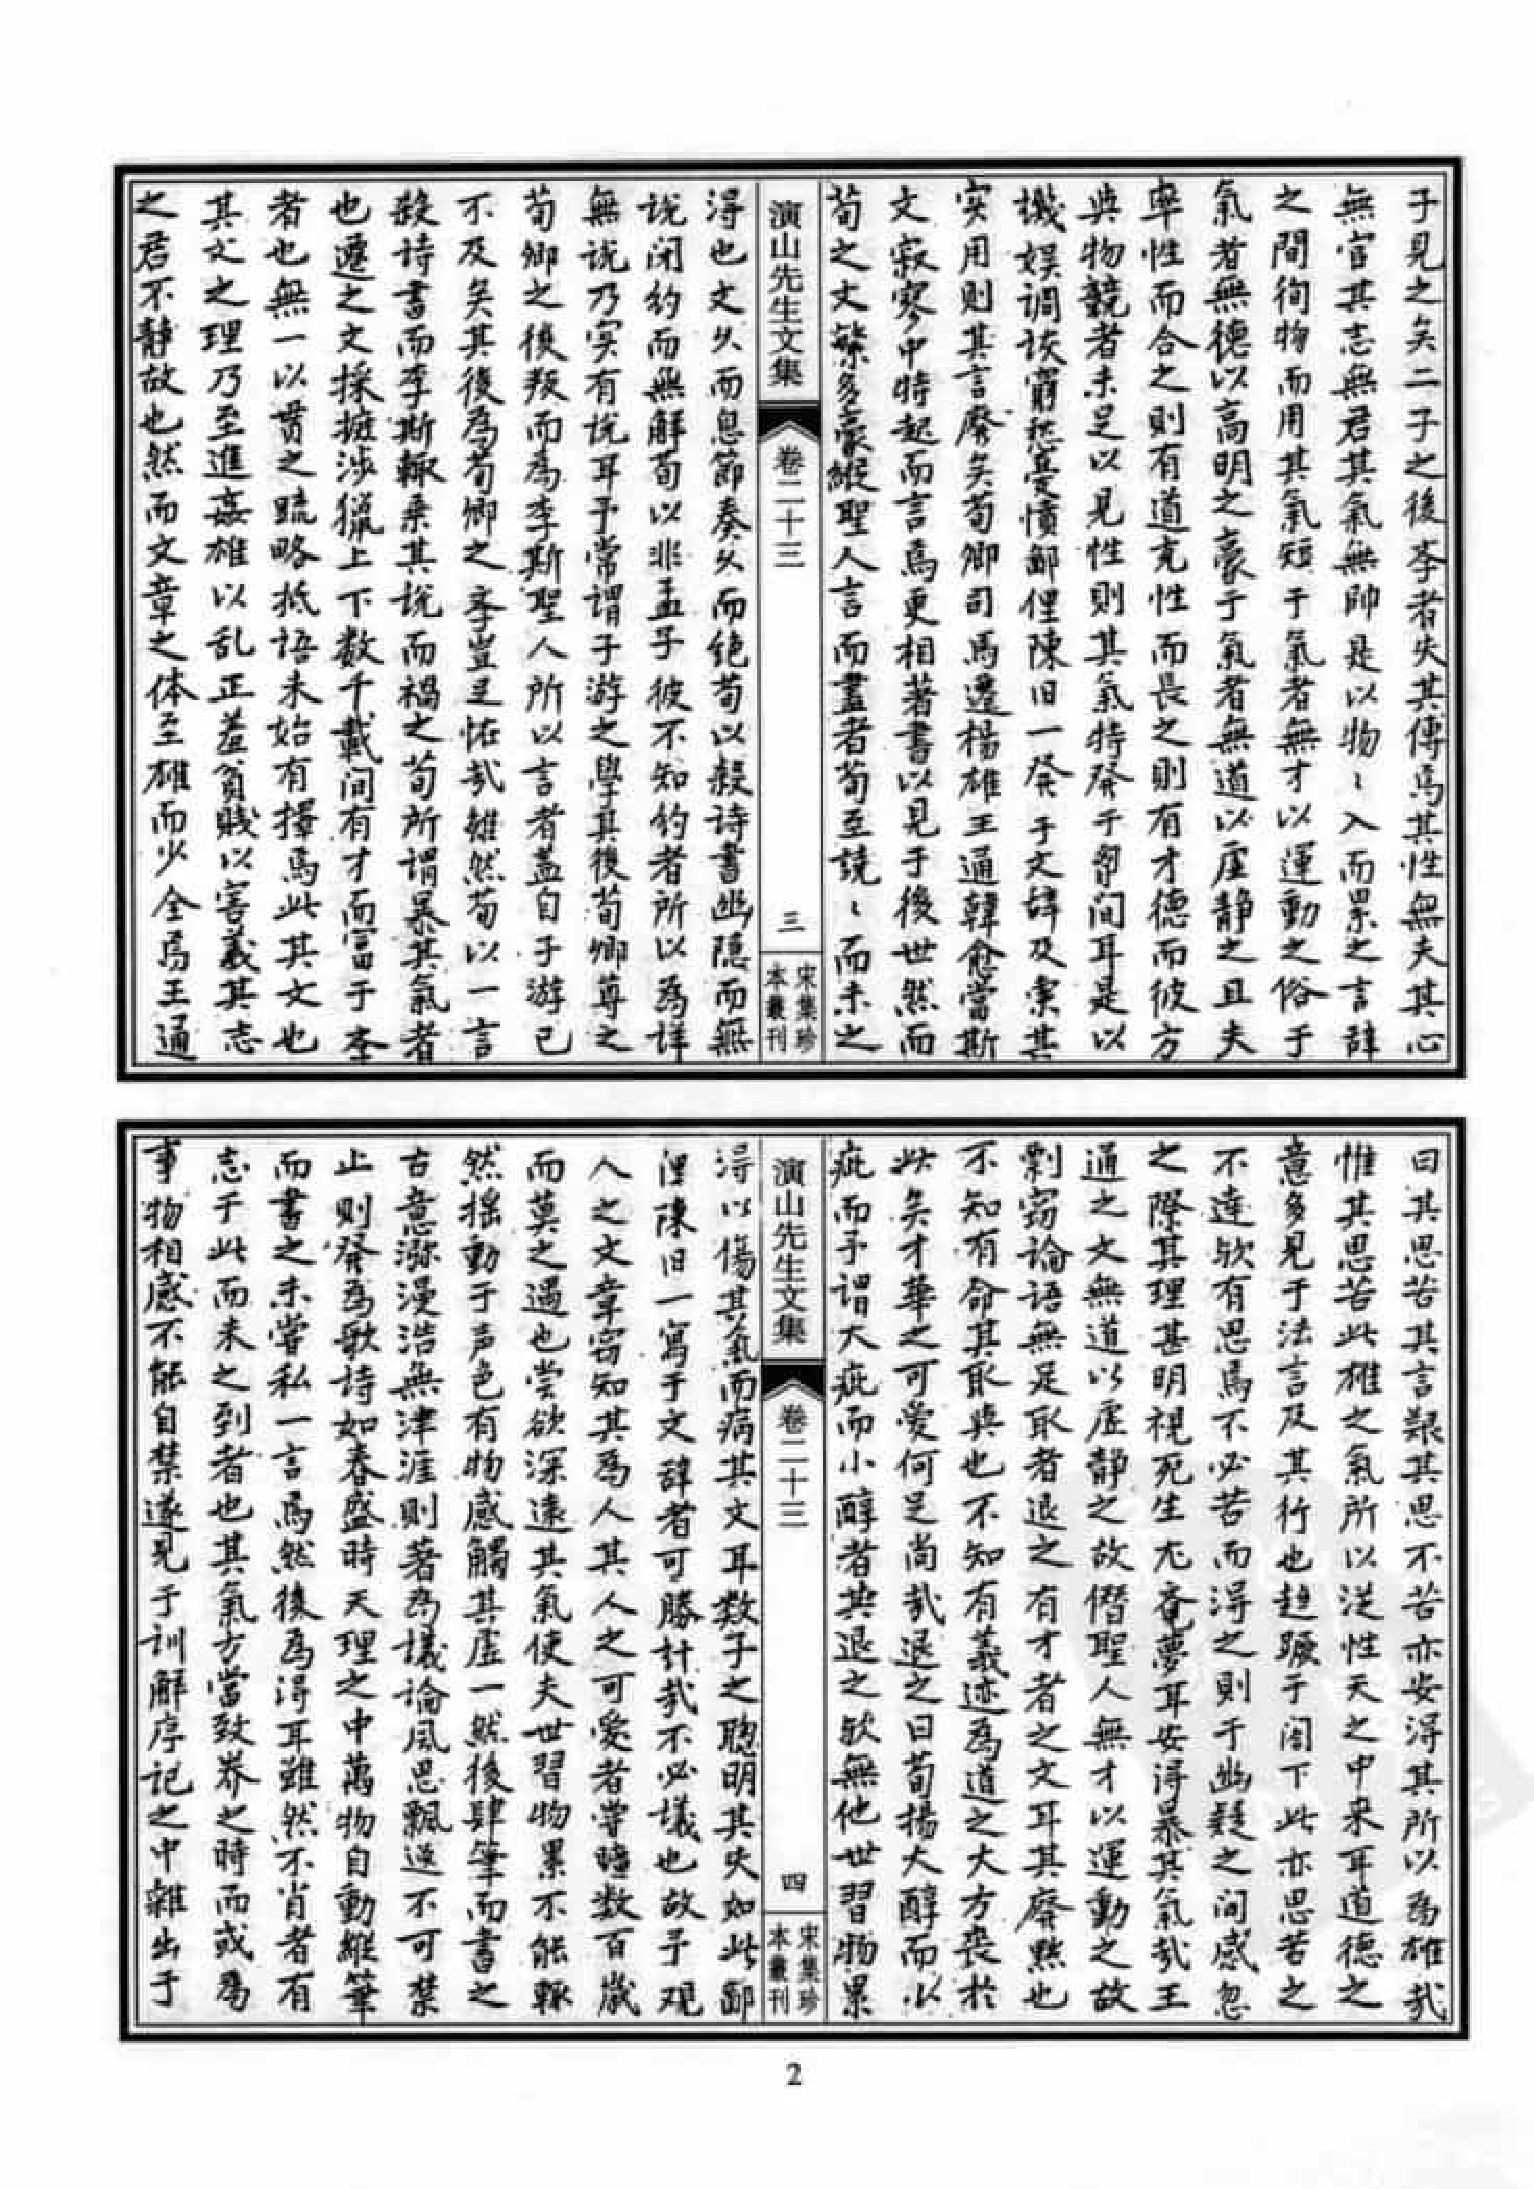 子見之矣二子之後李者失其傳焉其性無夫其心
無官其志無君其氣無帥是以物〻入而累之言辞
之間徇物而用其氣短于氣者無才以運動之俗于
氣者無德以高明之豪于氣者無道以虛静之且夫
率性而合之則有道充性而長之則有才德而彼方
与物競者未足以見性則其氣特發于胷间耳是以
譏娱调诙窮愁憂憤鄙俚陳旧一發于文辞及索其
实用則其言廢矣荀卿司馬遷楊雄王通韓愈當斯
文寂寥中特起而言焉更相著書以見于後世然而
荀之文繁多豪縱聖人言而盡者荀至譊〻而未之
演山先生文集
卷二十三
三
宋集珍
本叢刊
得也文乆而息節奏乆而绝荀以殺诗書幽隐而無
说闭約而無解荀以非孟子彼不知约者所以為详
無说乃实有说耳予常谓子游之學其後荀卿尊之
荀卿之後叛而為李斯聖人所以言者盖自子游已
不及矣其後為荀卿之李豈足怪㢤雖然荀以一言
殺诗書而李斯輙乗其説而禍之荀所谓暴其氣者
也遷之文採摭涉猎上下数千載间有才而富于李
者也無一以贯之疏略抵牾未始有擇焉此其文也
其文之理乃至進姦雄以乱正羞貧賤以害義其志
之君不静故也然而文章之体至雄而少全焉王通
曰其思苦其言艱其思不苦亦安得其所以為雄㢤
惟其思苦此雄之氣所以淫性天之中未耳道德之
意多見于法言及其行也趋蹶于阁下此亦思苦之
不達欤有思焉不必苦而得之則于幽疑之间感忽
之際其理甚明視死生尤奄夢耳安得暴其氣㢤王
通之文無道以虛静之故僭聖人無才以運動之故
剽窃論语無足取者退之有才者之文耳其廢黙也
不知有命其取與也不知有義迹為道之大方喪於
此矣才華之可爱何足尚㢤退之曰荀揚大醇而小
疵而予谓大疵而小醇者其退之欤無他世習物累
演山先生文集
卷二十三
四
宋集珍
本叢刊
得以傷其氣而病其文耳数子之聪明其失如此鄙
俚陳旧一寫于文辞者可勝計㢤不必議也故予观
人之文章窃知其為人其人之可爱者嘗嘻数百歲
而莫之遇也尝欲深遠其氣使夫世習物累不能輙
然摇動于声色有物感觸其虛一然後肆筆而書之
古意渺漫浩無津涯則著為議論风思飄逸不可禁
止則發為歌诗如春盛時天理之中萬物自動縱筆
而書之未嘗私一言焉然後為得耳雖然不肖者有
志于此而未之到者也其氣方當致养之時而或為
事物相感不能自禁遂見于训解序记之中雜出于
2